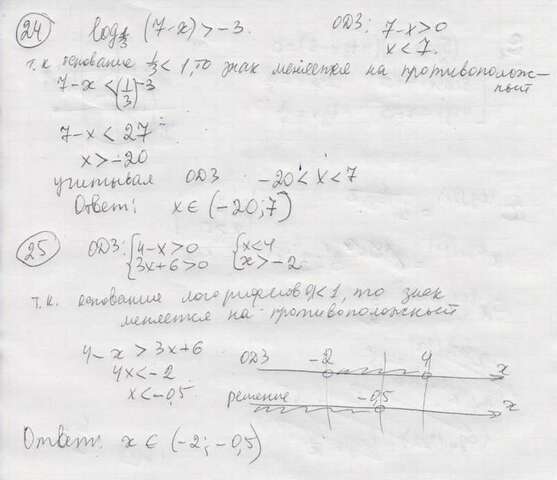 24 log_{1/3} (7-x) > -3. ОДЗ: 7-x>0
x<7.
т.к. основание 1/3 < 1, то знак меняется на противополож-
ный
7-x < (1/3)^{-3}
7-x < 27
x > -20
учитывая ОДЗ -20 < x < 7
Ответ: x ∈ (-20; 7)
25 ОДЗ: { 4-x>0 { x<4
{ 3x+6>0 { x>-2
т.к. основание логарифмов < 1, то знак
меняется на противоположный
4-x > 3x+6
4x < -2
x < -0,5
ОДЗ -2 4 x
решение -0,5 x
Ответ: x ∈ (-2; -0,5)